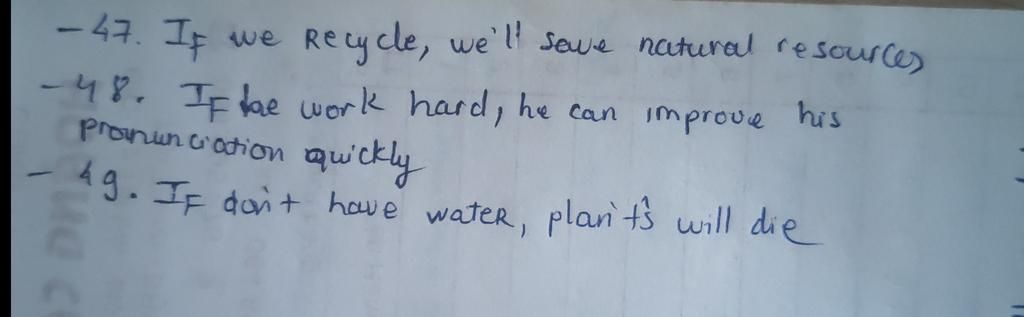 - 47. IF we Recycle, we'll save natural resources
- 48. IF he work hard, he can improve his
pronunciation quickly
- 49. IF don't have water, plant's will die